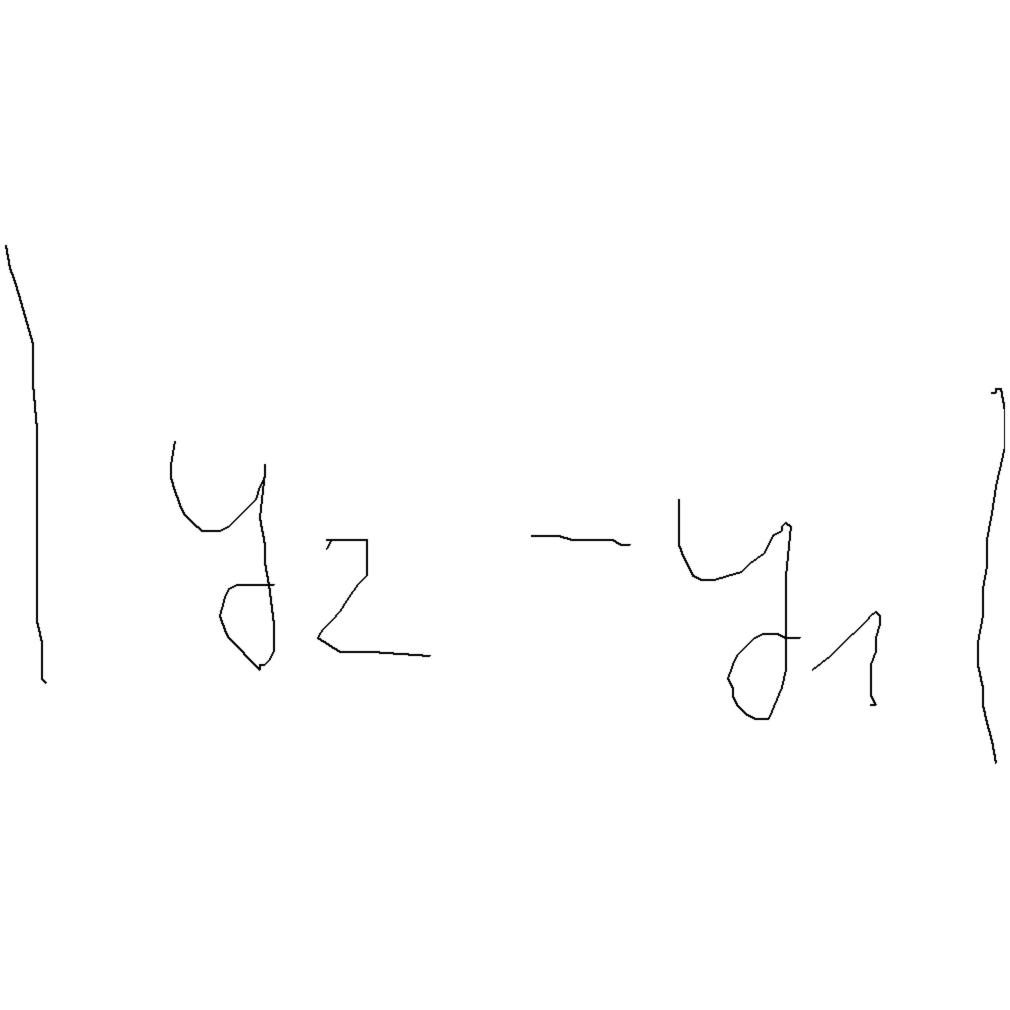 |y₂ - y₁|